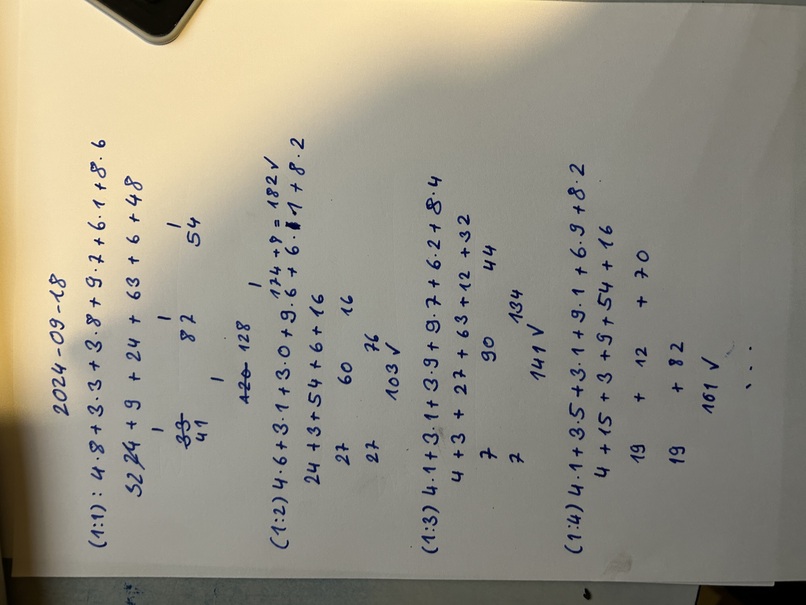 2024-09-18
(1:1): 4·8+3·3+3·8+9·7+6·1+8·6
32 24 + 9 + 24 + 63 + 6 + 48
33 87 54
41
120 128
174 + 8 = 182 ✓
(1:2) 4·6+3·1+3·0+9·6+6·1+8·2
24+3+54+6+16
27 60 16
27 76
103 ✓
(1:3) 4·1+3·1+3·9+9·7+6·2+8·4
4 +3 + 27 +63+12 +32
7 90 44
7 134
141 ✓
(1:4) 4·1+3·5+3·1+9·1+6·9+8·2
4 +15 +3 +9+54 +16
19 + 12 + 70
19 + 82
101 ✓
...